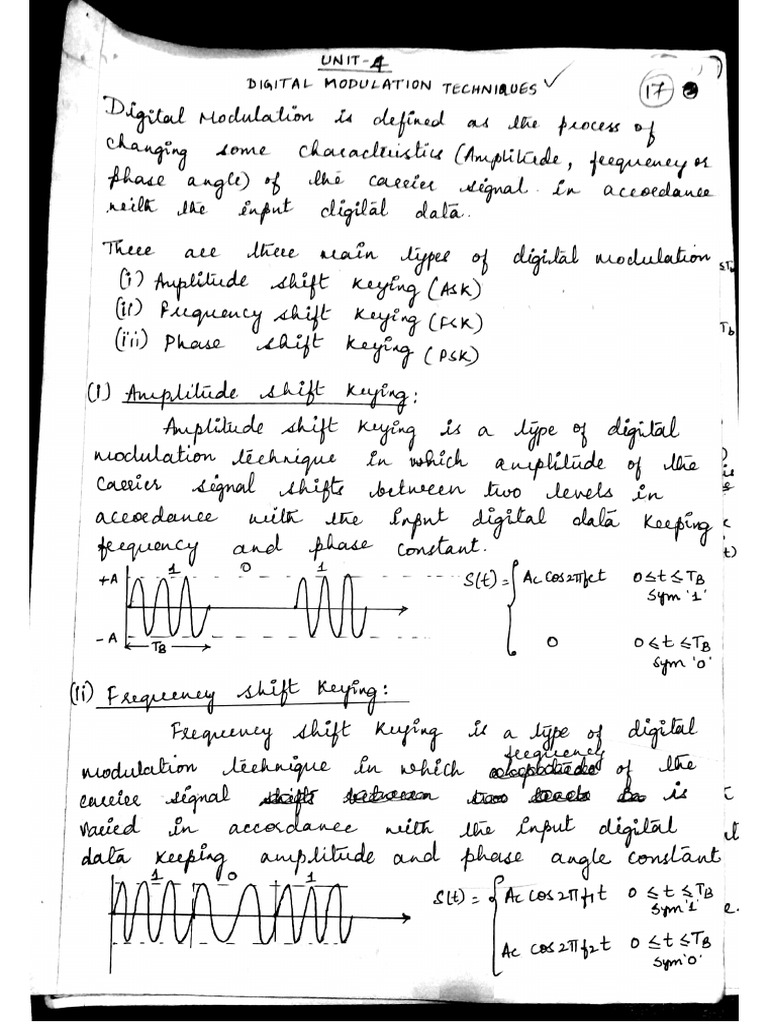 UNIT-4
DIGITAL MODULATION TECHNIQUES ✓
17
Digital Modulation is defined as the process of
changing some characteristics (Amplitude, frequency or
phase angle) of the carrier signal in accordance
with the input digital data.
There are three main types of digital modulation
(i) Amplitude shift keying (ASK)
(ii) Frequency shift keying (FSK)
(iii) Phase shift keying (PSK)
(i) Amplitude shift keying:
Amplitude shift keying is a type of digital
modulation technique in which amplitude of the
carrier signal shifts between two levels in
accordance with the input digital data keeping
frequency and phase constant.
+A 1 0 1
-A TB
S(t) = { Ac Cos2πfct 0≤t≤TB
Sym '1'
0 0≤t≤TB
sym '0'
(ii) Frequency shift keying:
Frequency shift keying is a type of digital
frequency
modulation technique in which of the
carrier signal is
varied in accordance with the input digital
data keeping amplitude and phase angle constant
1 0 1
S(t) = { Ac cos2πf1t 0≤t≤TB
sym '1'
Ac cos2πf2t 0≤t≤TB
sym '0'